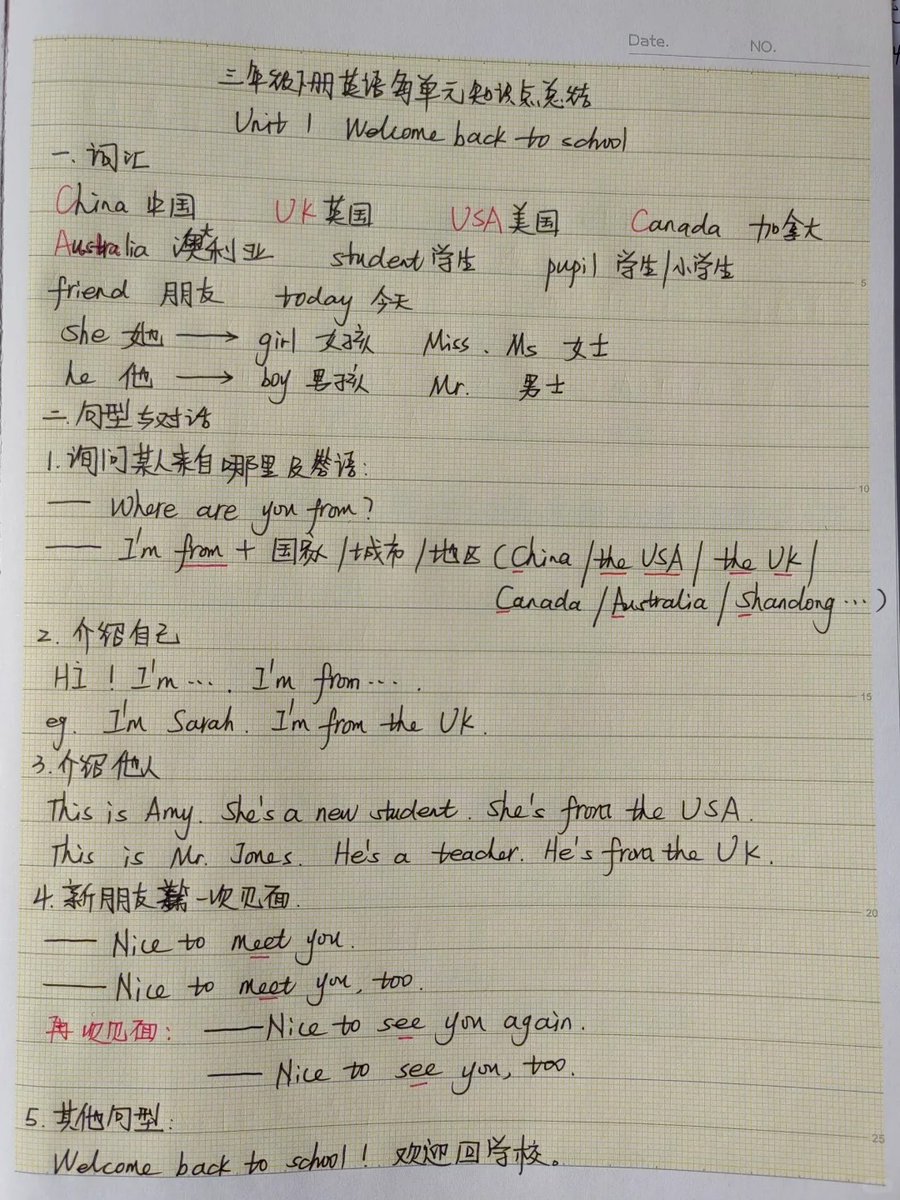 Date. NO.
三年级下册英语每单元知识点总结
Unit 1 Welcome back to school
一.词汇
China 中国 UK 英国 USA 美国 Canada 加拿大
Australia 澳大利亚 student 学生 pupil 学生/小学生
friend 朋友 today 今天
she 她 → girl 女孩 Miss. Ms 女士
he 他 → boy 男孩 Mr. 男士
二.句型与对话
1.询问某人来自哪里及答语:
— Where are you from?
— I'm from + 国家/城市/地区 (China/the USA/the UK/
Canada/Australia/Shandong…)
2.介绍自己
Hi! I'm…. I'm from….
eg. I'm Sarah. I'm from the UK.
3.介绍他人
This is Amy. She's a new student. She's from the USA.
This is Mr. Jones. He's a teacher. He's from the UK.
4.新朋友第一次见面.
— Nice to meet you.
— Nice to meet you, too.
再次见面: — Nice to see you again.
— Nice to see you, too.
5.其他句型:
Welcome back to school! 欢迎回学校。
5
10
15
20
25